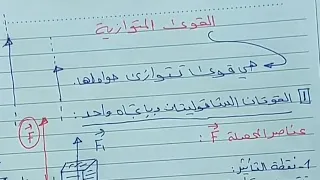 القوى المتوازية
هي قوى تتوازى حواملها.
1 القوتان الشاقوليتان بإتجاه واحد:
عناصر المحصلة F:
F
F₁
1- نقطة التأثير: